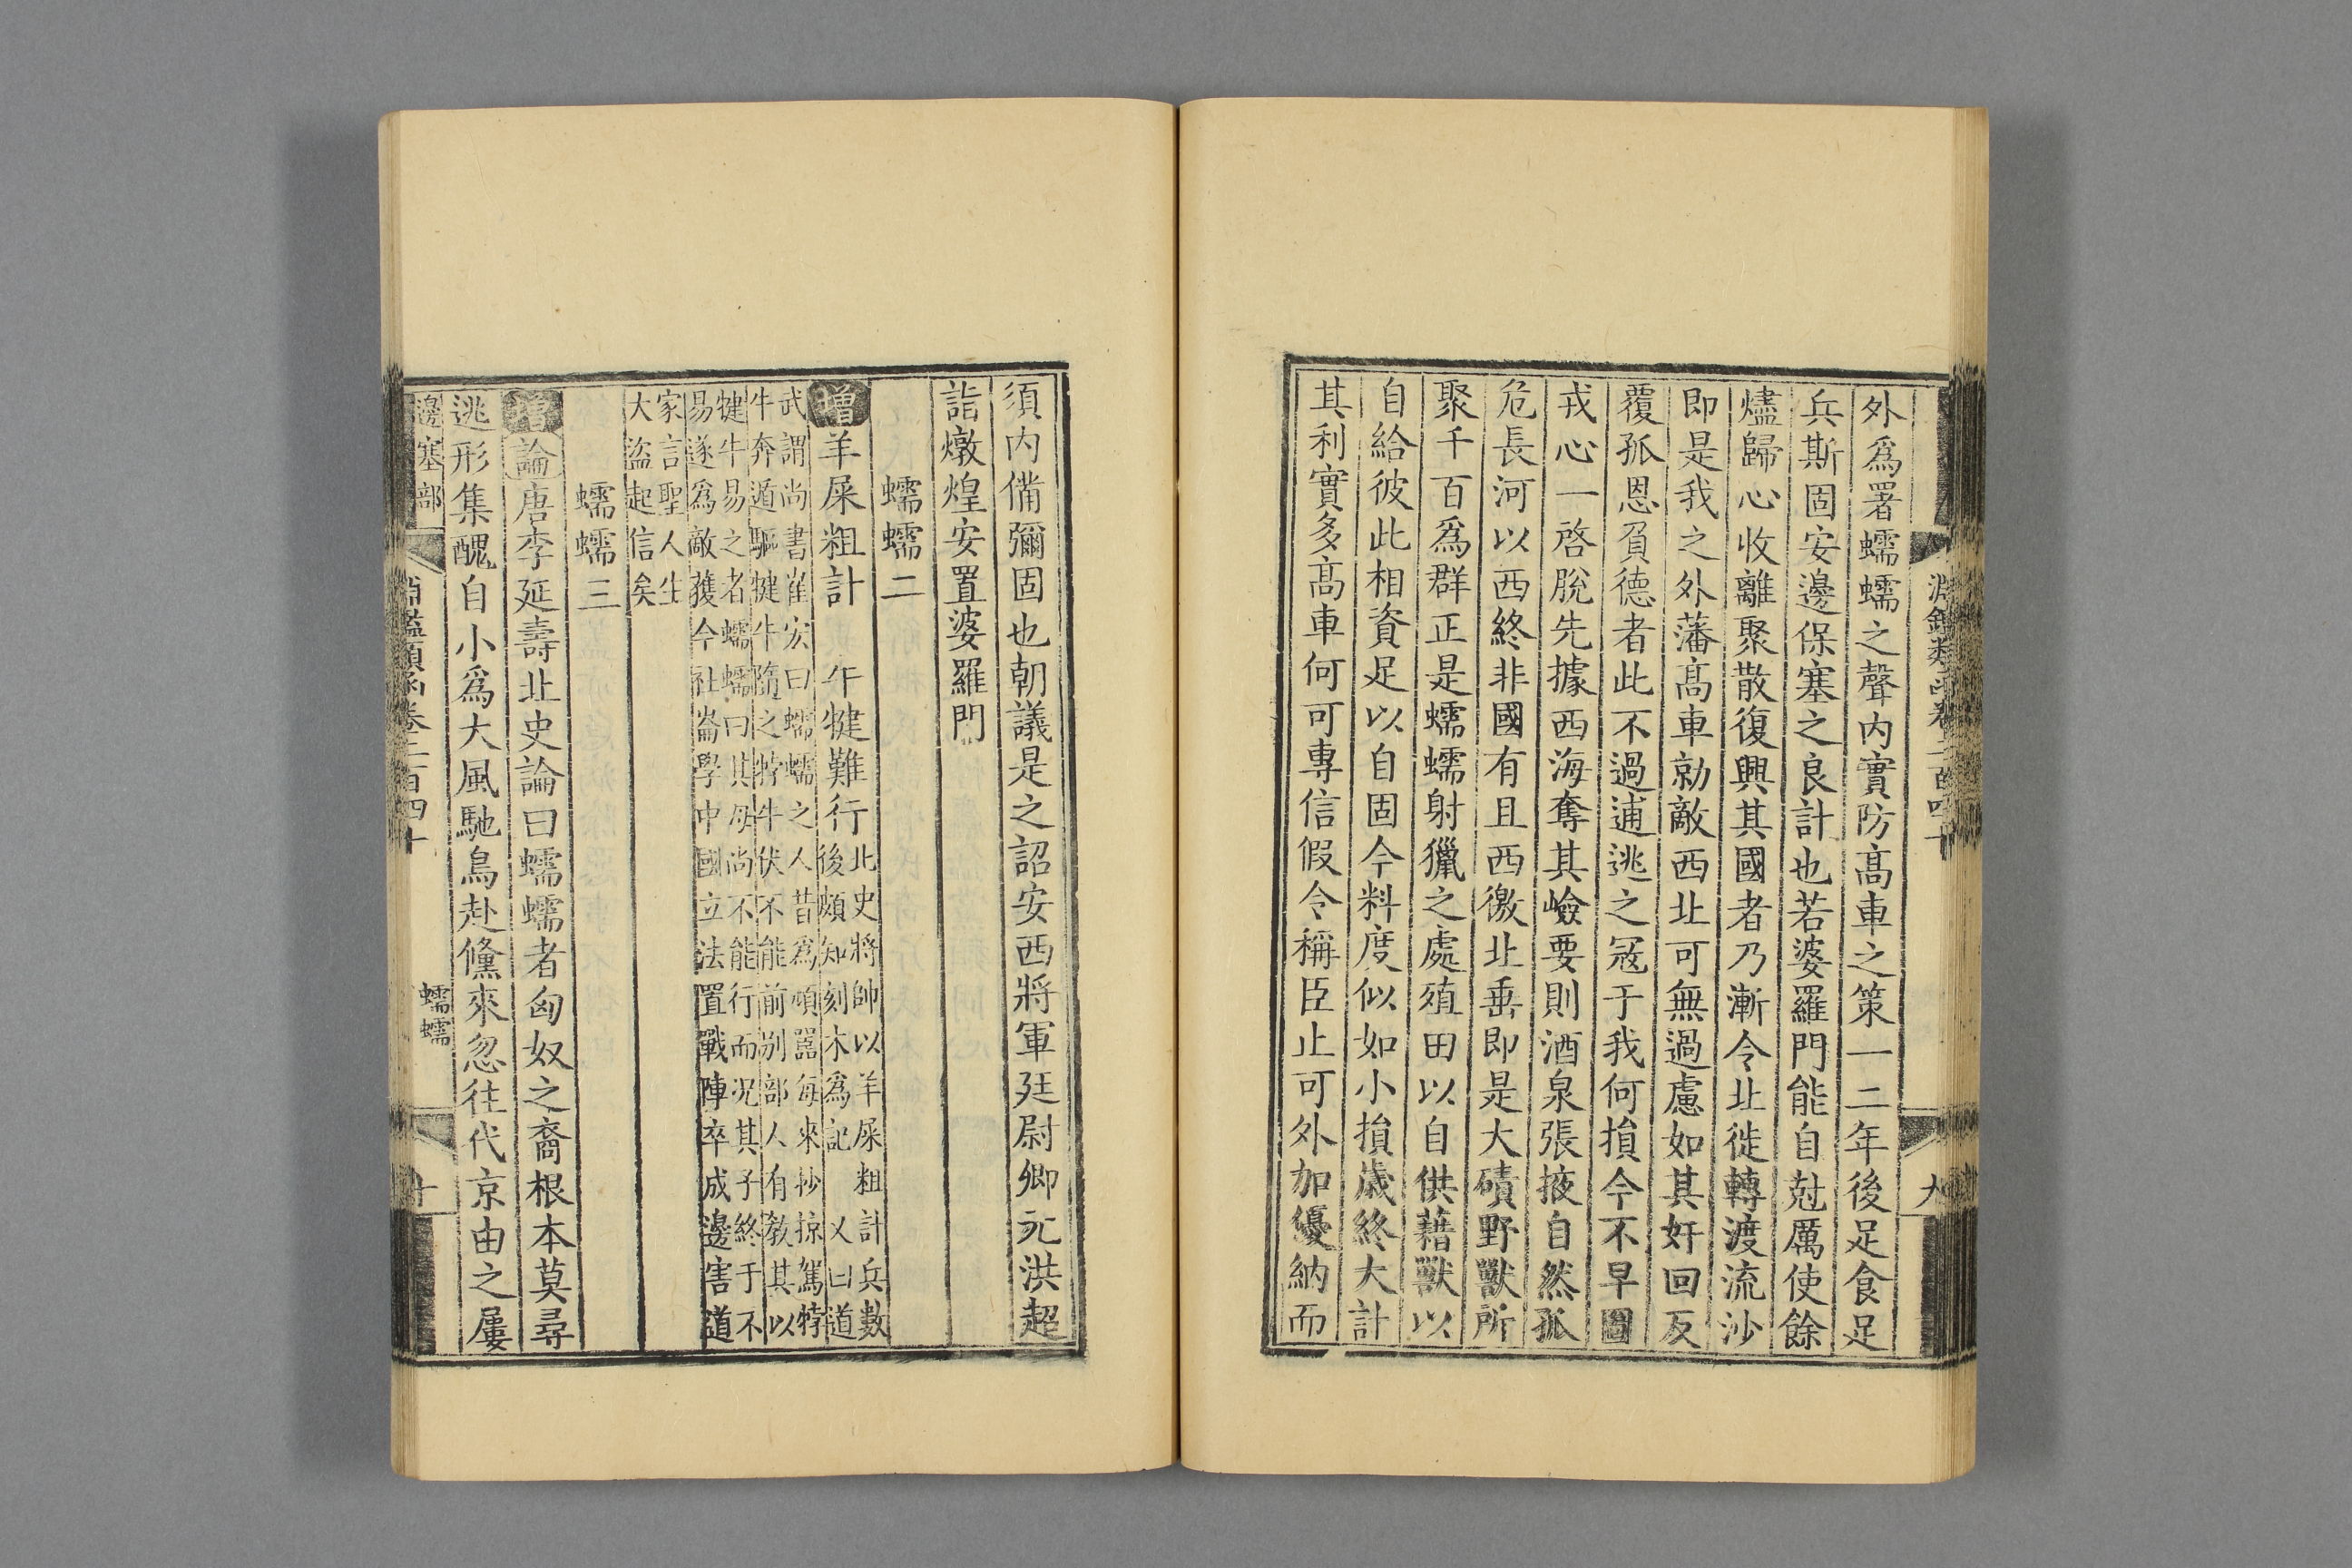 淵鑑類函卷二百四十
外爲署蠕蠕之聲内實防髙車之策一二年後足食足
兵斯固安邊保塞之良計也若婆羅門能自尅厲使餘
燼歸心收離聚散復興其國者乃漸令北徙轉渡流沙
即是我之外藩髙車勍敵西北可無過慮如其奸回反
覆孤恩負德者此不過逋逃之宼于我何損今不早圖
戎心一啓脫先據西海奪其嶮要則酒泉張掖自然孤
危長河以西終非國有且西徼北垂即是大磧野獸所
聚千百爲群正是蠕蠕射獵之處殖田以自供藉獸以
自給彼此相資足以自固今料度似如小損歲終大計
其利實多髙車何可專信假令稱臣止可外加優納而
須内備彌固也朝議是之詔安西將軍廷尉卿元洪超
詣燉煌安置婆羅門
蠕蠕二
增羊屎粗計 牛犍難行
北史將帥以羊屎粗計兵數
後頗知刻木爲記 又曰道
武謂尚書崔宏曰蠕蠕之人昔爲頑嚚每來抄掠駕牸
牛奔遁驅犍牛隨之牸牛伏不能前别部人有敎其以
犍牛易之者蠕蠕曰其母尚不能行而况其子終于不
易遂爲敵獲今社崙學中國立法置戰陣卒成邊害道
家言聖人生
大盜起信矣
蠕蠕三
增論唐李延壽北史論曰蠕蠕者匈奴之裔根本莫尋
逃形集醜自小爲大風馳鳥赴儵來忽往代京由之屢
邊塞部
淵鑑類函卷二百四十
蠕蠕
十